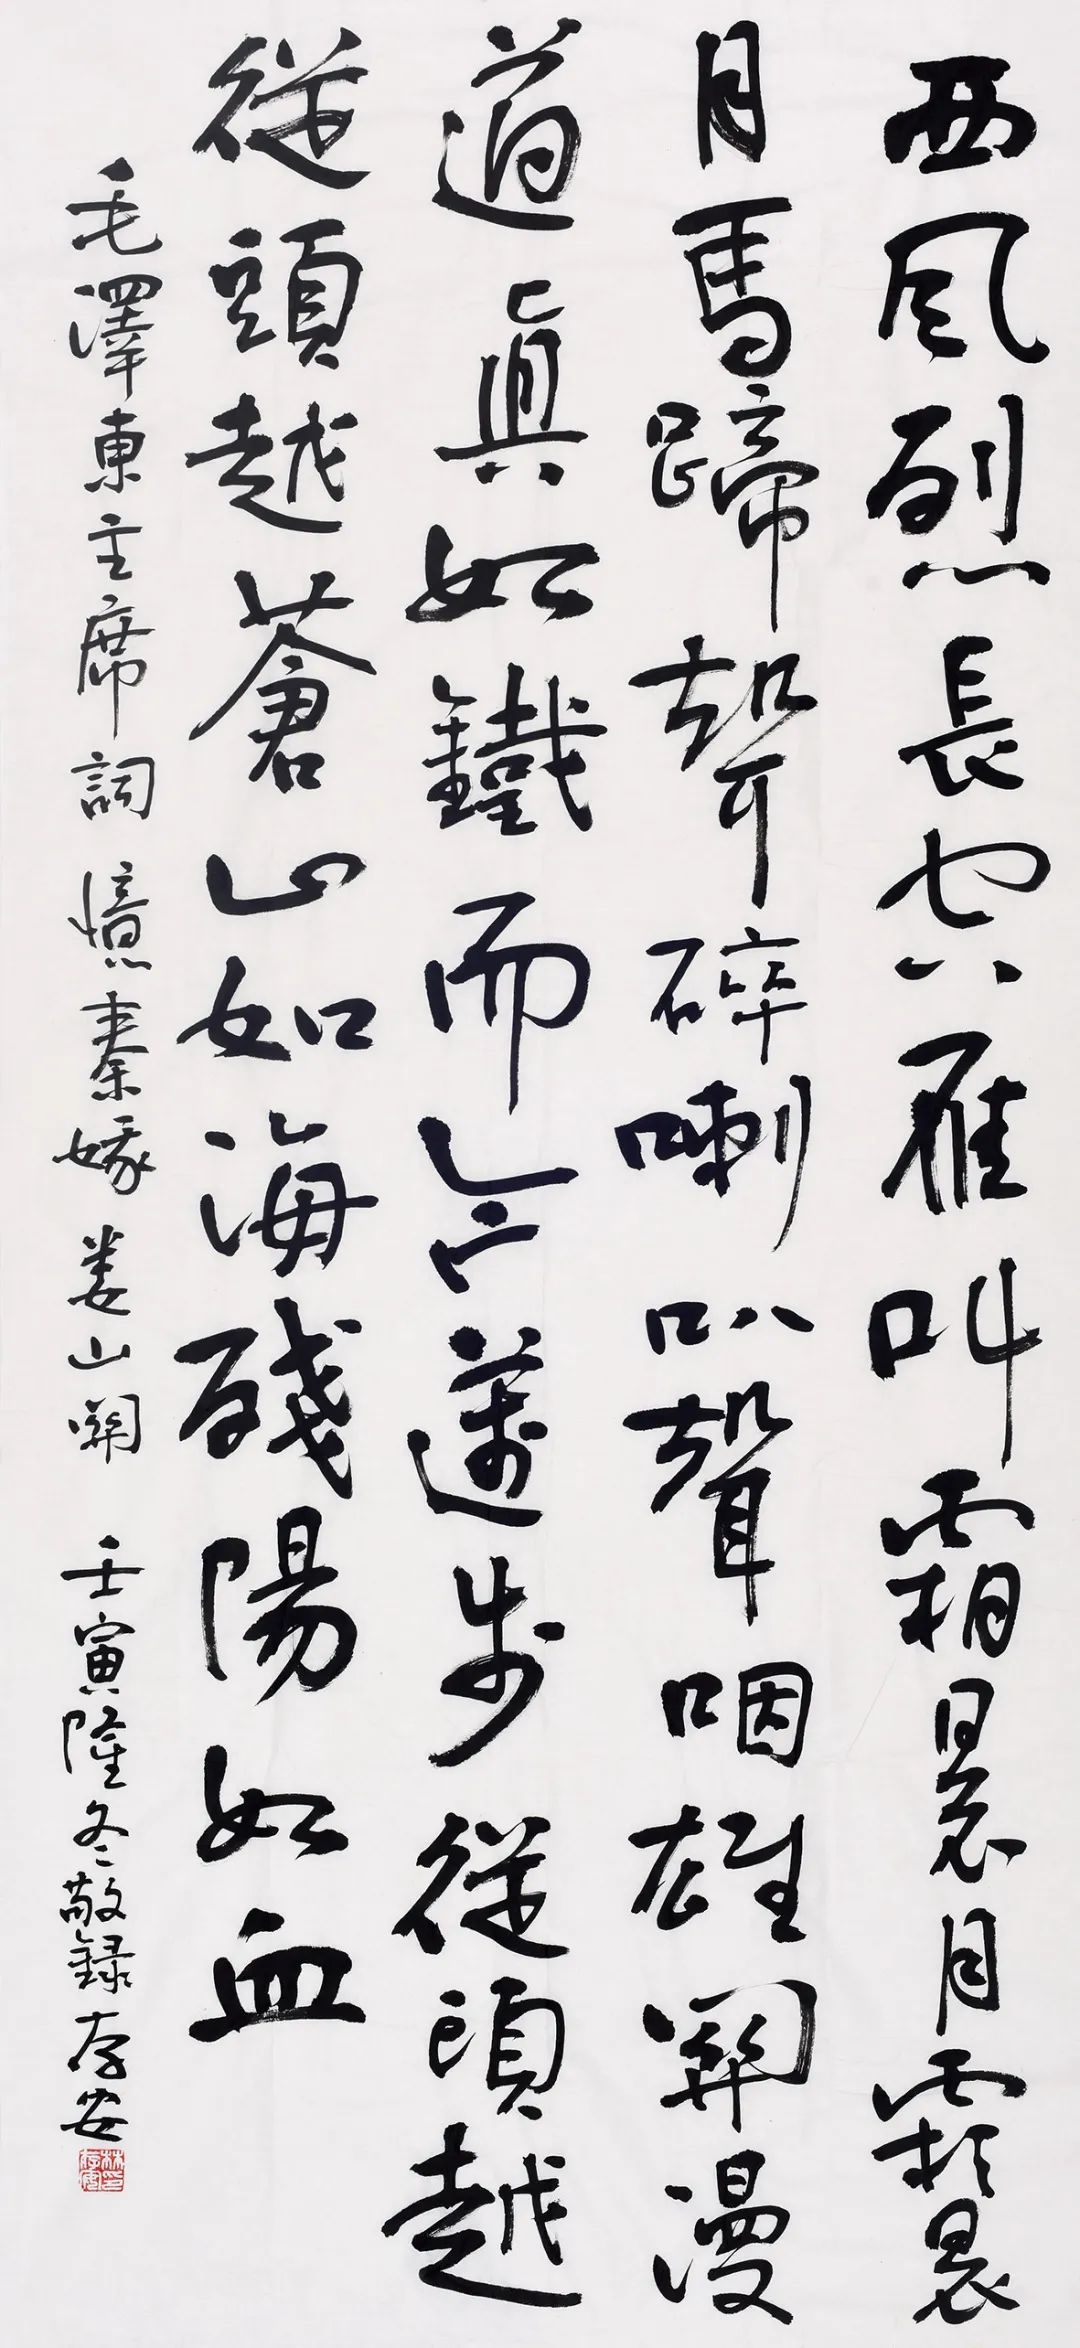 西風烈長空雁叫霜晨月霜晨
月馬蹄聲碎喇叭聲咽雄關漫
道眞如鐵而今邁步從頭越
從頭越蒼山如海殘陽如血
毛澤東主席詞 憶秦娥 婁山關 壬寅隆冬敬録存安